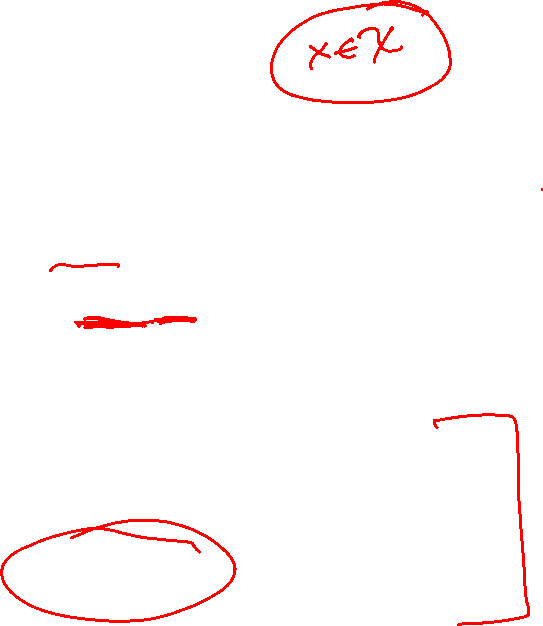 x ∈ 𝒳